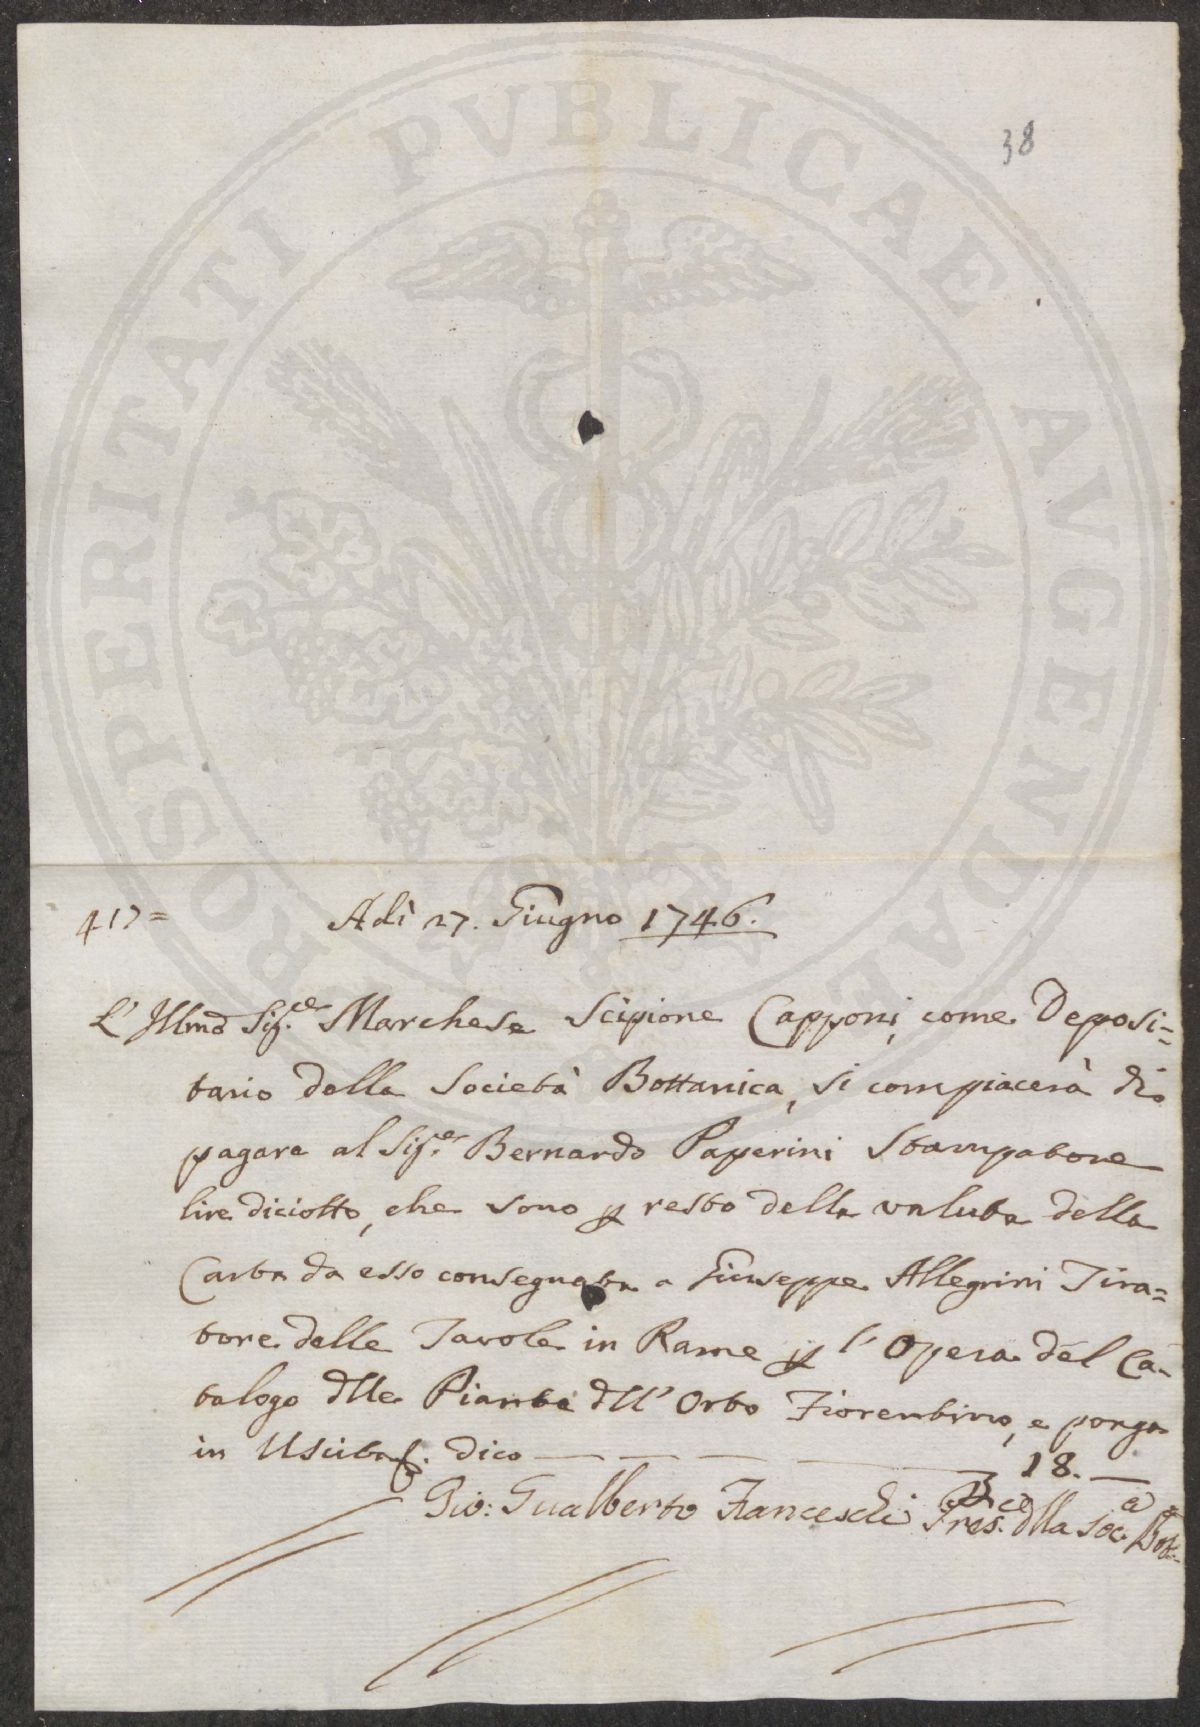 38
417= Adì 27. Giugno 1746.
L'Illmo Sig.re Marchese Scipione Capponi, come Deposi=
tario della Società Bottanica, si compiacerà di
pagare al Sig.re Bernardo Paperini Stampatore
lire diciotto, che sono p resto della valuta della
Carta da esso consegnata a Giuseppe Allegrini Tira=
tore delle Tavole in Rame p l'Opera del Ca=
talogo dlle Piante dll'Orto Fiorentino, e ponga
in Uscita. dico 18.—
Gio: Gualberto Franceschi Pres. dlla Soc. Bot.
PROSPERITATI PVBLICAE AVGENDAE